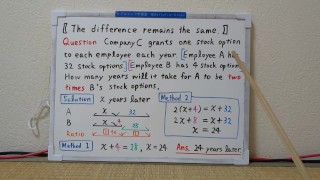 〖 The difference remains the same. 〗
Question Company C grants one stock option
to each employee each year. Employee A has
32 stock options. Employee B has 4 stock option.
How many years will it take for A to be two
times B's stock options.
Solution x years later
A x 32
B x 4 28
Ratio 1 1
Method 1 x+4 = 28, x = 24
Method 2
2(x+4) = x+32
2x+8 = x+32
x = 24
Ans. 24 years later